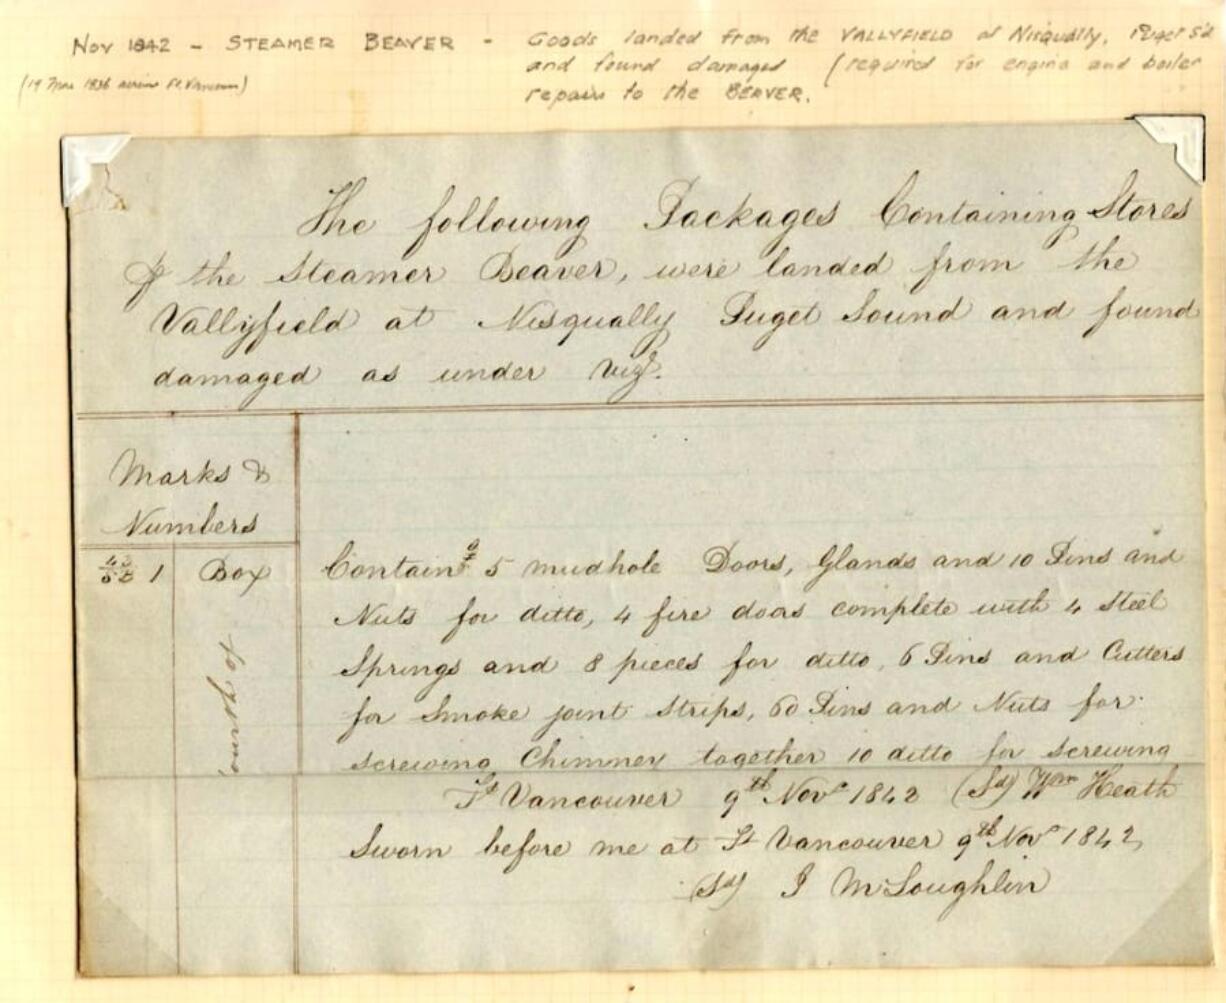 Nov 1842 - STEAMER BEAVER - Goods landed from the VALLYFIELD at Nisqually, Puget S'd
and found damaged (required for engine and boiler
(19 Mar 1836 Ft. Vancouver)
repairs to the BEAVER.
The following Packages Containing Stores
of the Steamer Beaver, were landed from the
Vallyfield at Nisqually Puget Sound and found
damaged as under vizt.
Marks &
Numbers
1 Box Containg 5 mudhole Doors, Glands and 10 Pins and
Nuts for ditto, 4 fire doors complete with 4 Steel
Springs and 8 pieces for ditto, 6 Pins and Cutters
for Smoke joint Strips, 60 Pins and Nuts for
screwing Chimney together 10 ditto for screwing
Ft Vancouver 9th Novr 1842 (Sd) Wm Heath
Sworn before me at Ft Vancouver 9th Novr 1842
(Sd) J McLoughlin